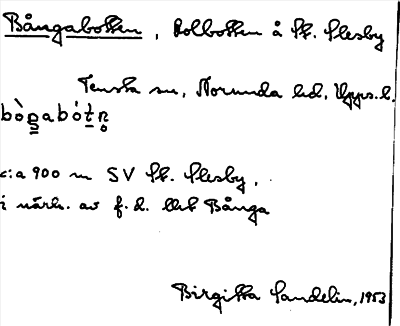 Bångabotten, Kolbotten å St. Ilesby
Tensta sn, Norunda hd, Upps.l.
bòŋabòtn̥
c:a 900 m SV St. Ilesby,
i närh. av f.d. Bånga
Birgitta Sandelin, 1953